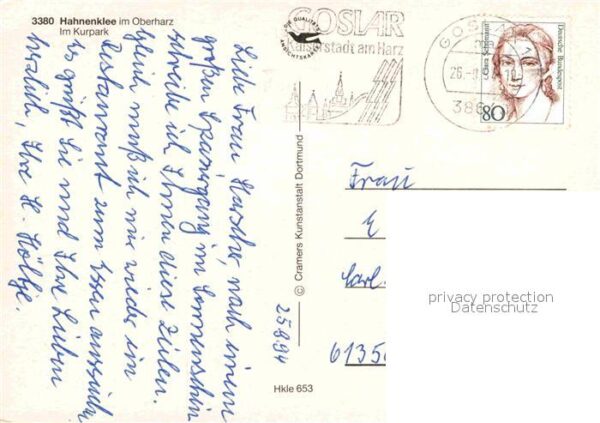 3380 Hahnenklee im Oberharz
Im Kurpark
DIE QUALITÄTS
ANSICHTSKARTE
GOSLAR
Kaiserstadt am Harz
GOSLAR
26.-8.94
386
Clara Schumann
Deutsche Bundespost
80
Liebe Frau Harscher, nach einem
großen Spaziergang im Sonnenschein
schreibe ich Ihnen diese Zeilen.
Gleich muß ich mir wieder ein
Restaurant zum Essen aussuchen
Es grüßt Sie und Ihre Lieben
herzlich, Ihre H. Höltje.
25.8.94
© Cramers Kunstanstalt Dortmund
Hkle 653
Frau
E
Carl-
6135
privacy protection
Datenschutz